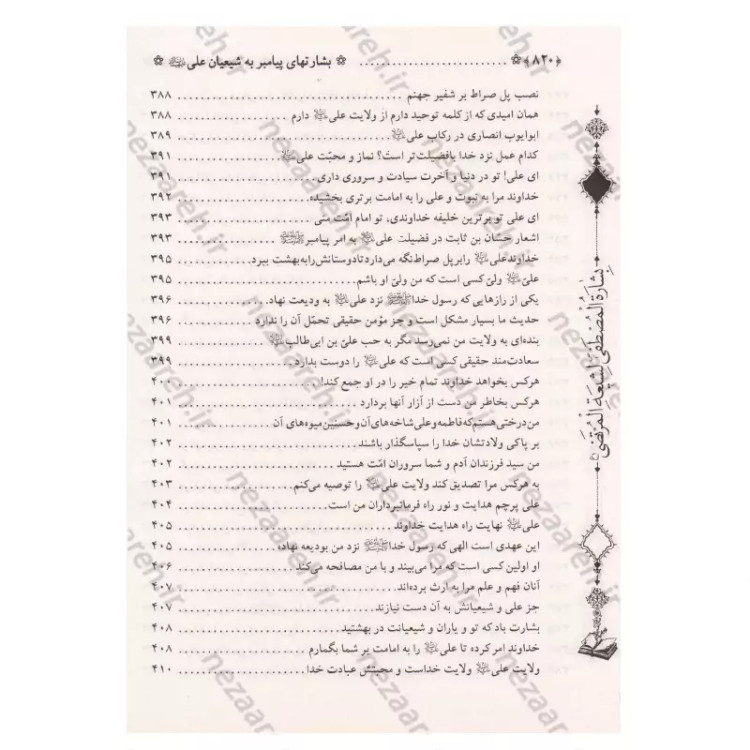 ﴿۸۲۰﴾ ❁ .......................... ❁ بشارتهای پیامبر به شیعیان علی ❁
نصب پل صراط بر شفیر جهنم ۳۸۸
همان امیدی که از کلمه توحید دارم از ولایت علی دارم ۳۸۸
ابوایوب انصاری در رکاب علی ۳۸۹
کدام عمل نزد خدا بافضیلت‌تر است؟ نماز و محبّت علی ۳۹۱
ای علی! تو در دنیا و آخرت سیادت و سروری داری ۳۹۱
خداوند مرا به نبوت و علی را به امامت برتری بخشیده ۳۹۲
ای علی تو برترین خلیفه خداوندی، تو امام امّت منی ۳۹۳
اشعار حسّان بن ثابت در فضیلت علی به امر پیامبر ۳۹۳
خداوند علی را بر پل صراط نگه می‌دارد تا دوستانش را به بهشت ببرد ۳۹۵
علیّ ولیّ کسی است که من ولیّ او باشم ۳۹۵
یکی از رازهایی که رسول خدا نزد علی به ودیعت نهاد ۳۹۶
حدیث ما بسیار مشکل است و جز مؤمن حقیقی تحمّل آن را ندارد ۳۹۶
بنده‌ای به ولایت من نمی‌رسد مگر به حب علیّ بن ابی‌طالب ۳۹۹
سعادت‌مند حقیقی کسی است که علی را دوست بدارد ۳۹۹
هرکس بخواهد خداوند تمام خیر را در او جمع کند! ۴۰۰
هرکس بخاطر من دست از آزار آنها بردارد ۴۰۱
من درختی هستم که فاطمه و علی شاخه‌های آن و حسنین میوه‌های آن ۴۰۱
بر پاکی ولادتشان خدا را سپاسگذار باشند ۴۰۲
من سید فرزندان آدم و شما سروران امّت هستید ۴۰۲
به هرکس مرا تصدیق کند ولایت علی را توصیه می‌کنم ۴۰۳
علی پرچم هدایت و نور راه فرمانبرداران من است ۴۰۴
علی نهایت راه هدایت خداوند ۴۰۵
این عهدی است الهی که رسول خدا نزد من بودیعه نهاده ۴۰۵
او اولین کسی است که مرا می‌بیند و با من مصافحه می‌کند ۴۰۶
آنان فهم و علم مرا به ارث برده‌اند ۴۰۷
جز علی و شیعیانش به آن دست نیازند ۴۰۷
بشارت باد که تو و یاران و شیعیانت در بهشتید ۴۰۸
خداوند امر کرده تا علی را به امامت بر شما بگمارم ۴۰۸
ولایت علی ولایت خداست و محبتش عبادت خدا ۴۱۰
بشارة المصطفی لشیعة المرتضی
nezaareh.ir